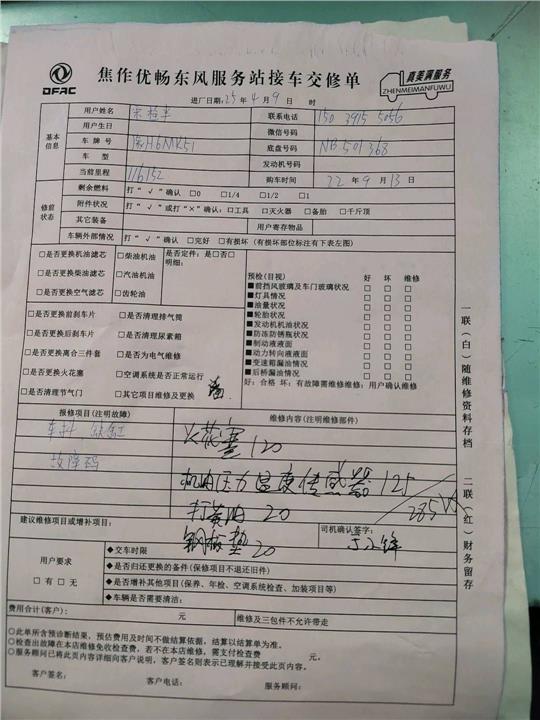 DFAC
焦作优畅东风服务站接车交修单
真美满服务
ZHENMEIMANFUWU
进厂日期: 25年 4月 9日 时
基本信息
用户姓名
联系电话 150 3915 5056
用户生日
微信号码
车牌号 豫H6MK51
底盘号码 NB501368
车型
发动机号码
当前里程 116152
购车时间 22年 9月 13日
修前状态
剩余燃料 打“√”确认 □0 □1/4 □1/2 □1
附件状况 打“√”或打“×”确认: □工具 □灭火器 □备胎 □千斤顶
其它装备
用户寄存物品
车辆外部情况 打“√”确认 □完好 □有损坏 (有损坏部位标注有下表左图)
□是否更换机油滤芯 □柴油机油
是否定件: 是□否□
明细:
□是否更换柴油滤芯 □汽油机油
□是否更换空气滤芯 □齿轮油
□是否更换前刹车片 □是否清理排气筒
□是否更换后刹车片 □是否清理尿素箱
□是否更换离合三件套 □是否为电气维修
□是否更换火花塞 □空调系统是否正常运行
□是否清理节气门 □其它项目维修及更换
预检(目视) 好 坏 维修
■前挡风玻璃及车门玻璃状况 □ □ □
■灯具情况 □ □ □
■油量状况 □ □ □
■轮胎状况 □ □ □
■发动机机油情况 □ □ □
■防冻防锈瓶状况 □ □ □
■制动液液面 □ □ □
■动力转向液液面 □ □ □
■变速箱漏油情况 □ □ □
■后桥漏油情况 □ □ □
好: 合格 坏: 有故障需维修维修: 用户确认维修
报修项目(注明故障)
维修内容(注明维修部件)
车抖 缺缸
故障码
火花塞 120
机油压力温度传感器 125
打黄油 20
钢板垫 20
285
建议维修项目或增补项目:
司机确认签字:
用户要求
□有 □无
◆交车时限
◆是否归还更换的备件(保修项目不退还旧件)
◆是否增补其他项目(保养、年检、空调系统检查、加装项目等)
◆车辆是否需要清洁:
费用合计(客户): 元
维修及三包件不允许带走
○此单所含预诊断结果,预估费用及时间不做结算依据,结算以结算单为准。
○检查出故障在本店维修免收检查费,若不在本店维修,需支付检查费 元。
○服务顾问已将此页内容详细向客户说明,客户签名则表示已理解并接受此页内容。
客户签名: 客户电话: 服务顾问:
一联(白)随维修资料存档
二联(红)财务留存